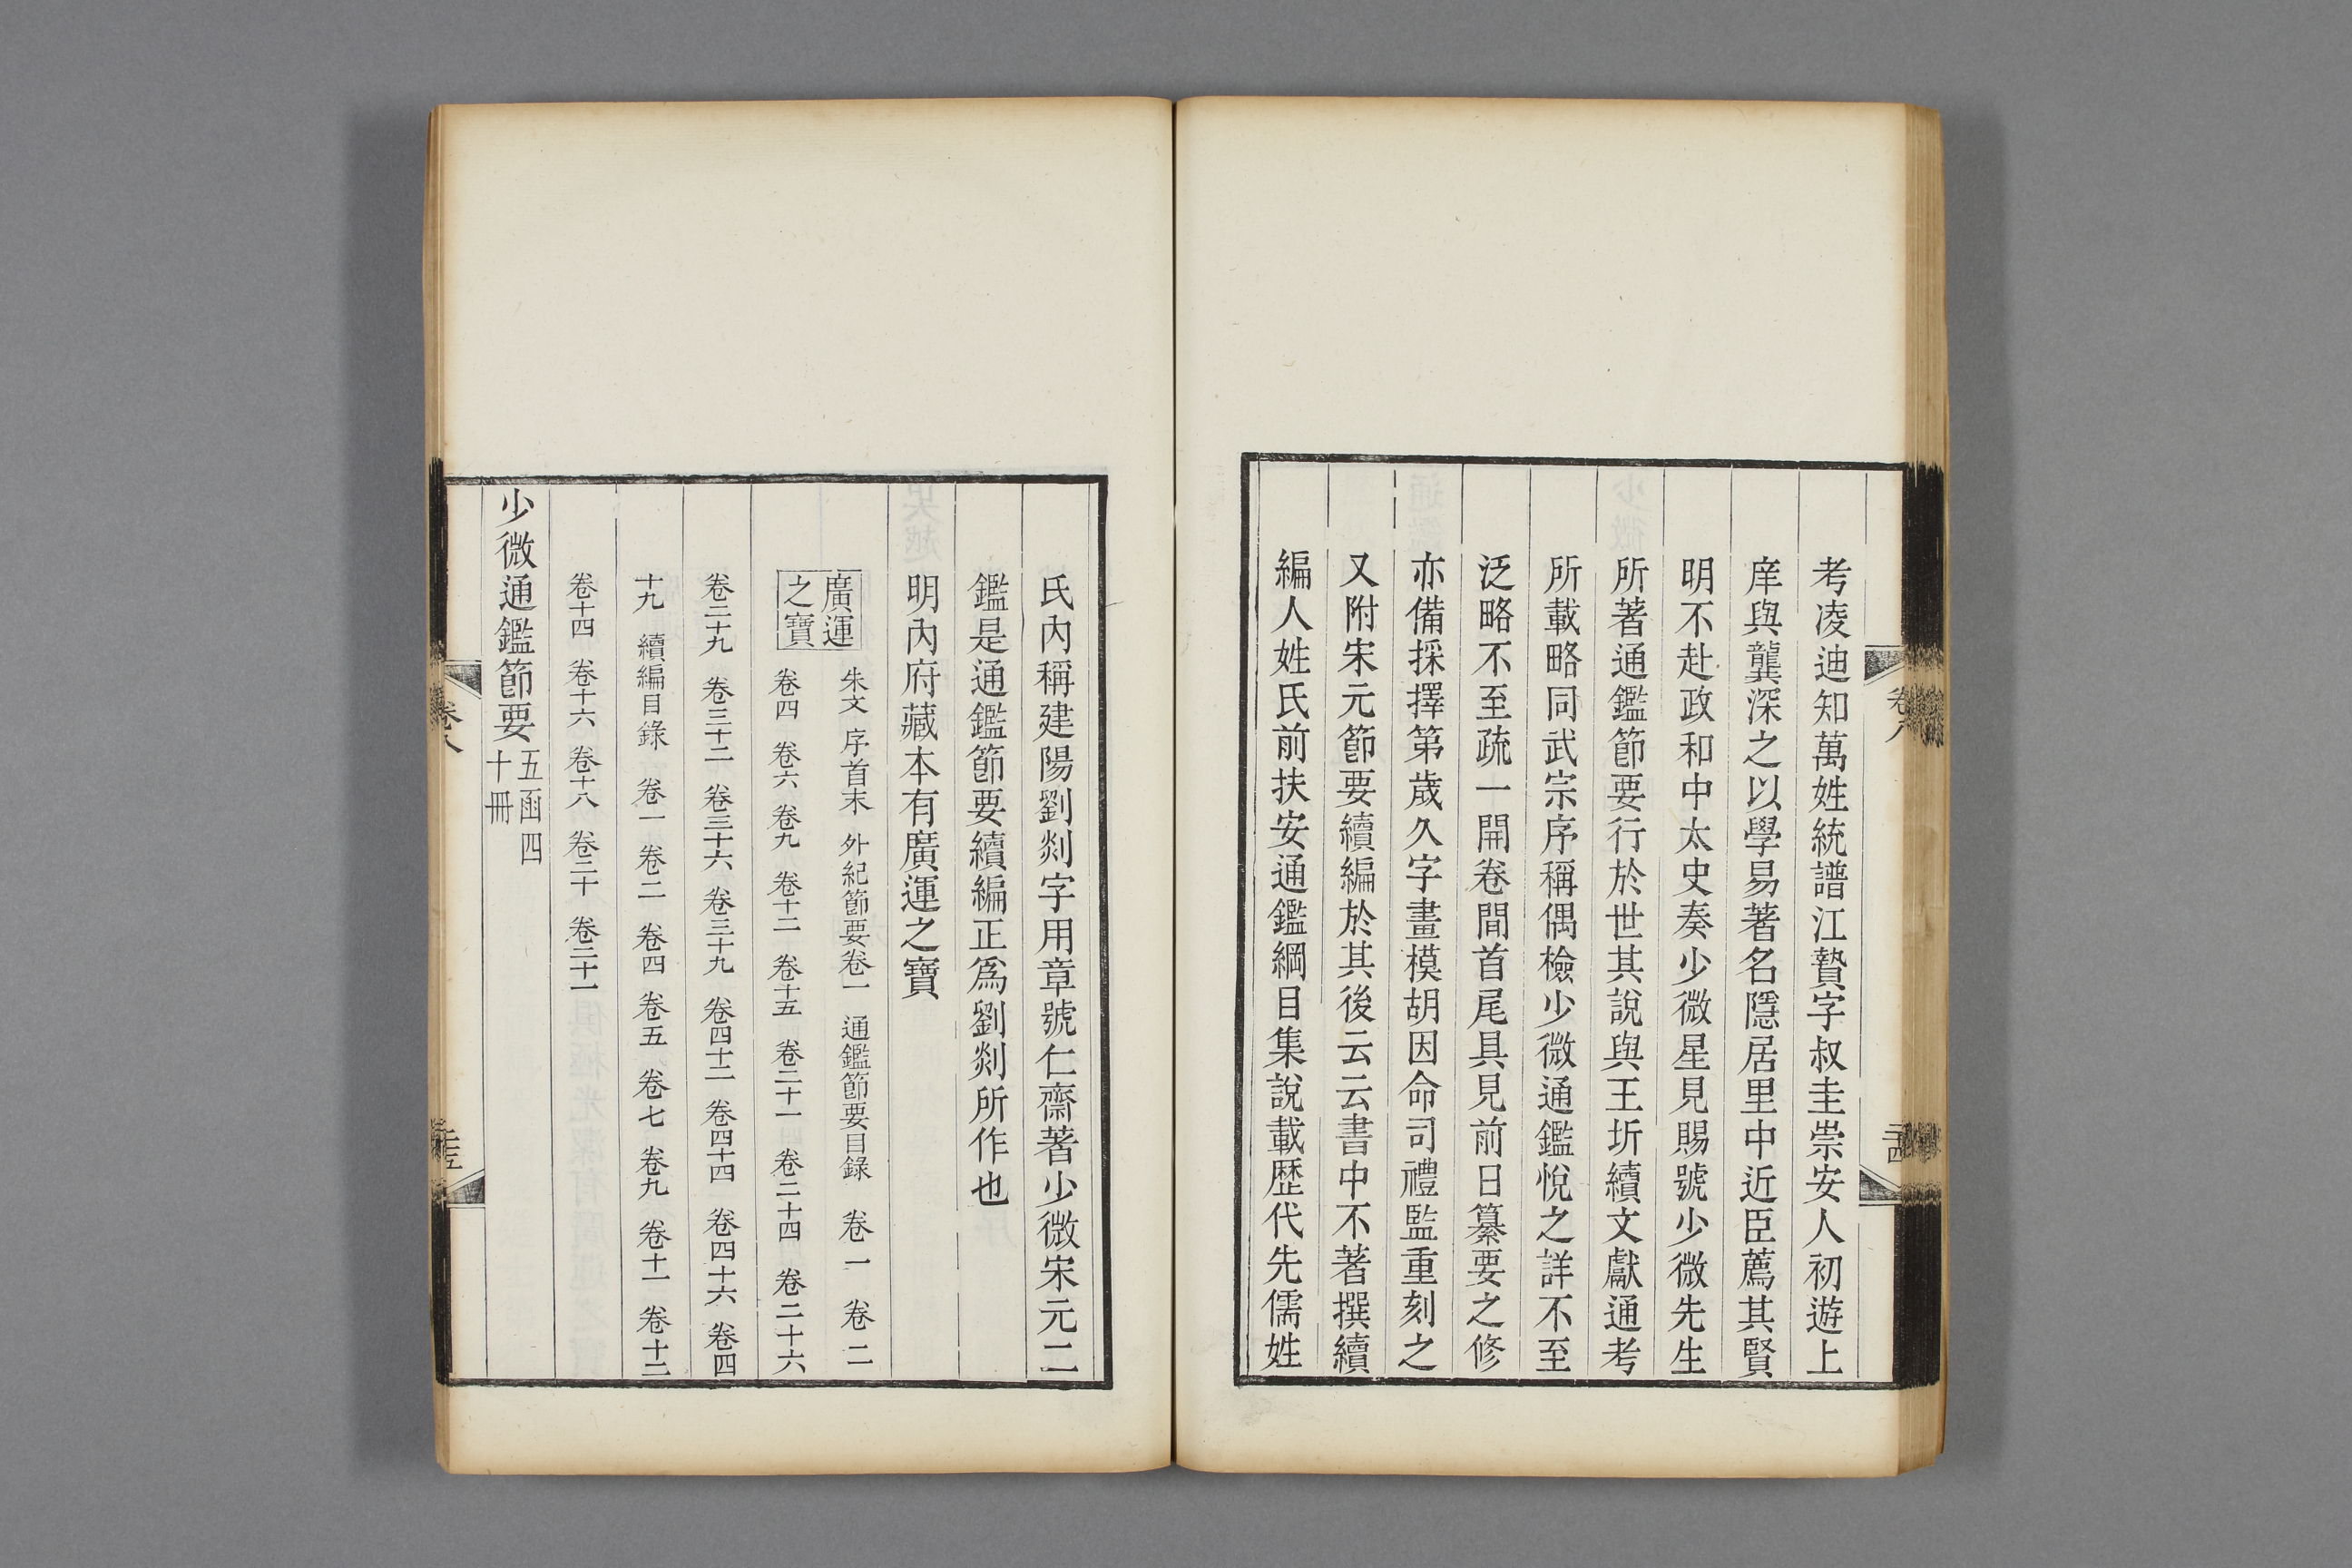 考凌迪知萬姓統譜江贄字叔圭崇安人初遊上
庠與龔深之以學易著名隱居里中近臣薦其賢
明不赴政和中太史奏少微星見賜號少微先生
所著通鑑節要行於世其說與王圻續文獻通考
所載略同武宗序稱偶檢少微通鑑悅之詳不至
泛略不至疏一開卷間首尾具見前日纂要之修
亦備採擇第歲久字畫模胡因命司禮監重刻之
又附宋元節要續編於其後云云書中不著撰續
編人姓氏前扶安通鑑綱目集說載歷代先儒姓
卷八
二十四
氏內稱建陽劉剡字用章號仁齋著少微宋元二
鑑是通鑑節要續編正為劉剡所作也
明內府藏本有廣運之寶
廣運
之寶
朱文 序首末 外紀節要卷一 通鑑節要目錄 卷一 卷二
卷四 卷六 卷九 卷十二 卷十五 卷二十一 卷二十四 卷二十六
卷二十九 卷三十二 卷三十六 卷三十九 卷四十二 卷四十四 卷四十六 卷四
十九 續編目錄 卷一 卷二 卷四 卷五 卷七 卷九 卷十一 卷十二
卷十四 卷十六 卷十八 卷二十 卷二十一
少微通鑑節要 五函四
十冊
卷八